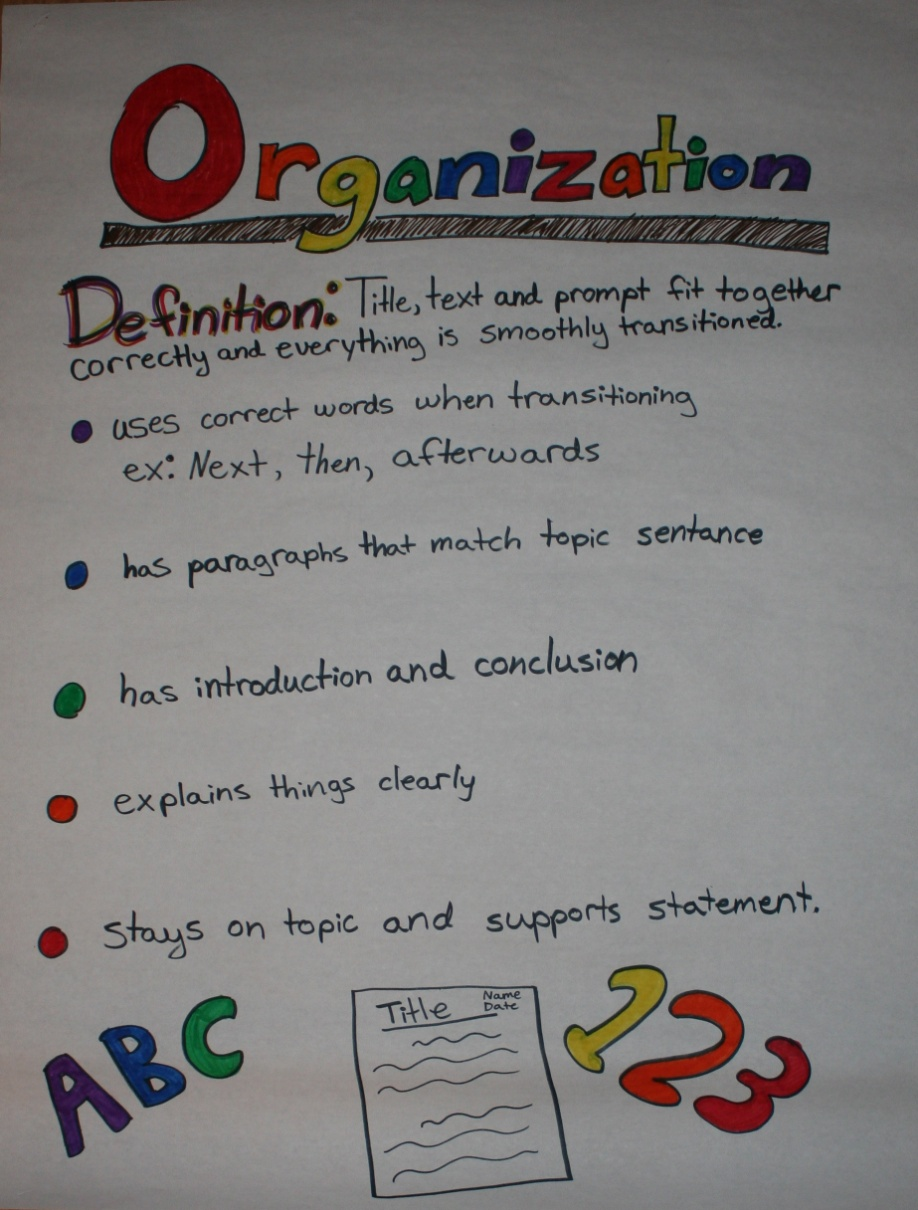 Organization
Definition: Title, text and prompt fit together
correctly and everything is smoothly transitioned.
uses correct words when transitioning
ex: Next, then, afterwards
has paragraphs that match topic sentance
has introduction and conclusion
explains things clearly
stays on topic and supports statement.
ABC
Title Name
Date
123